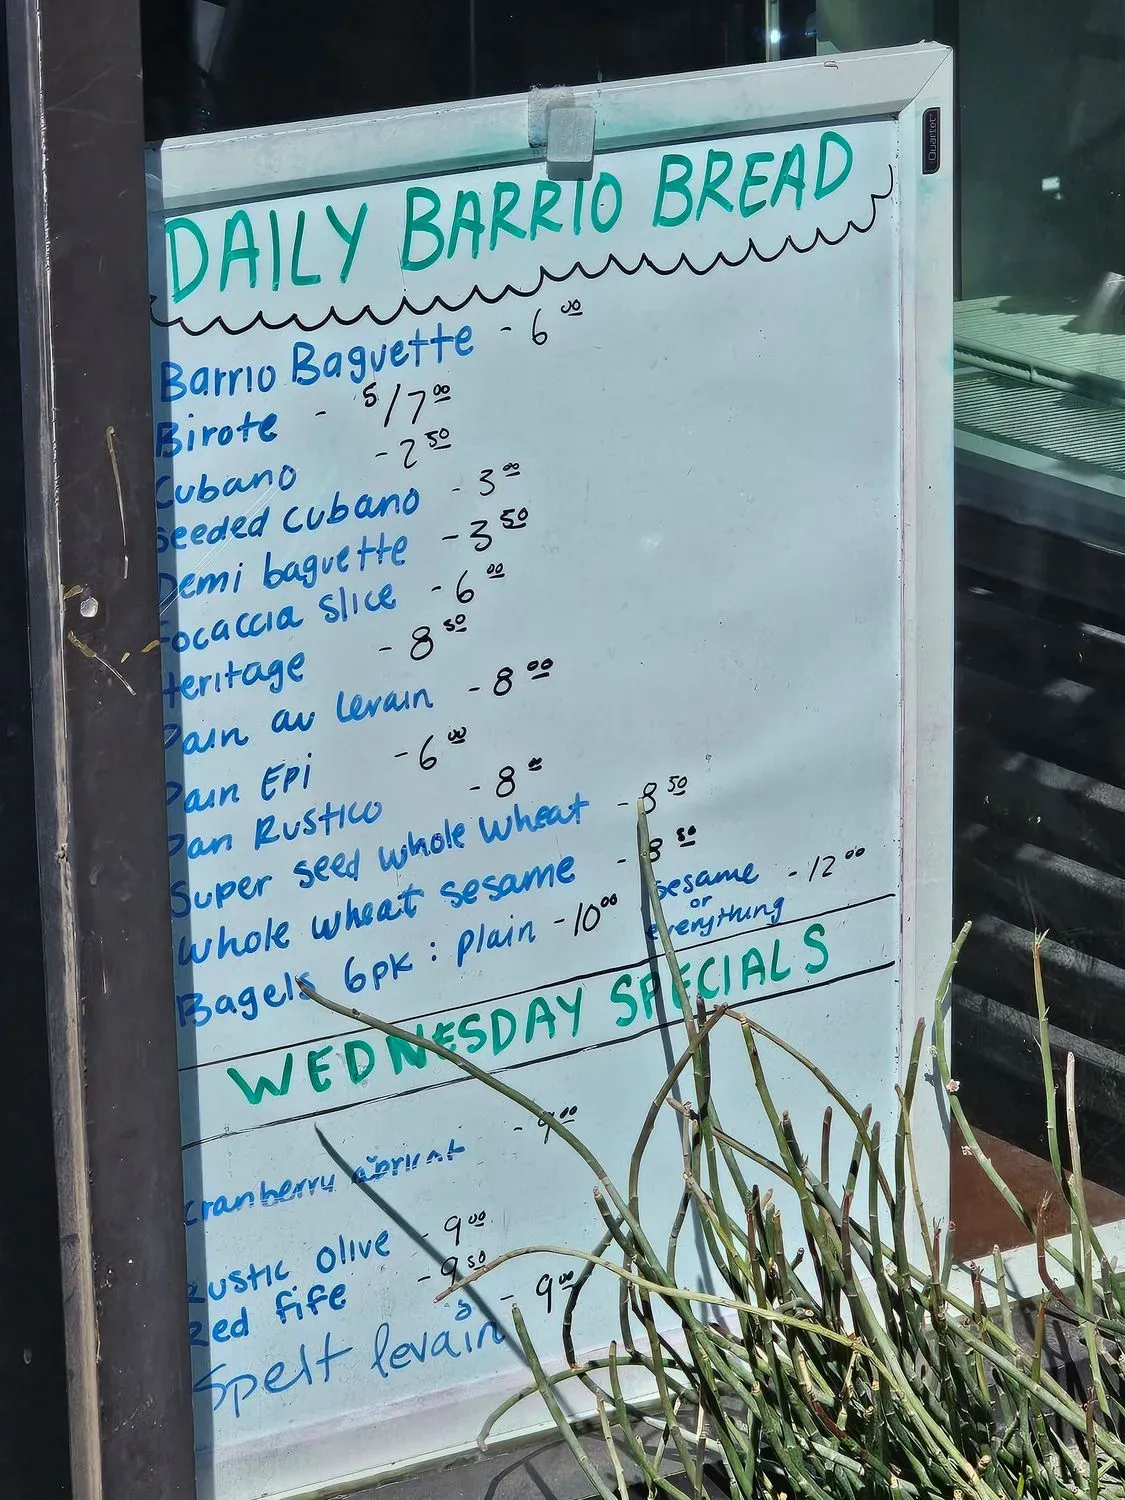 Quartet
DAILY BARRIO BREAD
Barrio Baguette - 6 00
Birote - 5/7 00
Cubano - 2 50
Seeded Cubano - 3 00
Demi baguette - 3 50
Focaccia Slice - 6 00
Heritage - 8 50
Pain au levain - 8 00
Pain EPi - 6 00
Pan Rustico - 8 00
Super seed whole wheat - 8 50
Whole wheat sesame - 8 50
Bagels 6pk : plain - 10 00 sesame or everything - 12 00
WEDNESDAY SPECIALS
Cranberry apricot - 9 00
Rustic olive - 9 00
Red fife - 9 50
Spelt levain - 9 00